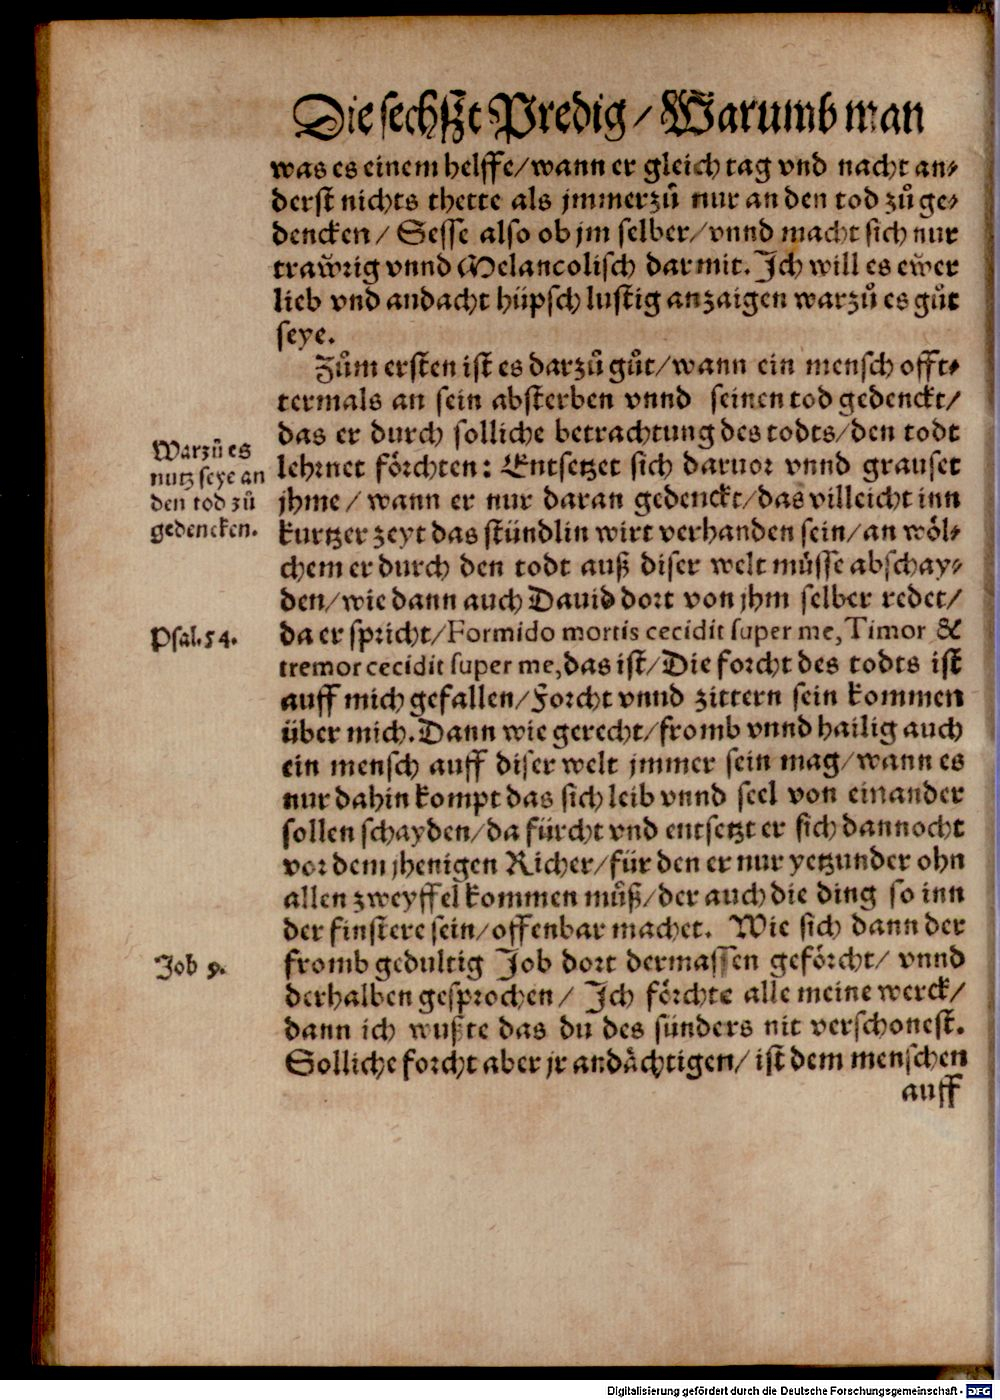 Die sechſzt Predig / Warumb man
was es einem helffe/wann er gleich tag vnd nacht an-
derst nichts thette als jmmerzů nur an den tod zů ge-
dencken/ Sesse also ob jm selber/vnnd macht sich nur
trawrig vnnd Melancolisch darmit. Ich will es ewer
lieb vnd andacht hüpsch lustig anzaigen warzů es gůt
seye.
Zům ersten ist es darzů gůt/wann ein mensch offt-
termals an sein absterben vnnd seinen tod gedenckt/
das er durch solliche betrachtung des todts/den todt
Warzů es
nutz seye an
den tod zů
gedencken.
lehrnet förchten: Entsetzet sich daruor vnnd grauset
jhme/ wann er nur daran gedenckt/das villeicht inn
kurtzer zeyt das stündlin wirt verhanden sein/an wöl-
chem er durch den todt auß diser welt müsse abschay-
den/wie dann auch Dauid dort von jhm selber redet/
Psal.54.
da er spricht/Formido mortis cecidit super me, Timor &
tremor cecidit super me, das ist/Die forcht des todts ist
auff mich gefallen/Forcht vnnd zittern sein kommen
über mich. Dann wie gerecht/fromb vnnd hailig auch
ein mensch auff diser welt jmmer sein mag/wann es
nur dahin kompt das sich leib vnnd seel von einander
sollen schayden/da fürcht vnd entsetzt er sich dannocht
vor dem jhenigen Richer/für den er nur yetzunder ohn
allen zweyffel kommen můß/der auch die ding so inn
der finstere sein/offenbar machet. Wie sich dann der
Job 9.
fromb gedultig Job dort dermassen geförcht/ vnnd
derhalben gesprochen/ Ich förchte alle meine werck/
dann ich wußte das du des sünders nit verschonest.
Solliche forcht aber jr andächtigen/ ist dem menschen
auff
Digitalisierung gefördert durch die Deutsche Forschungsgemeinschaft - DFG